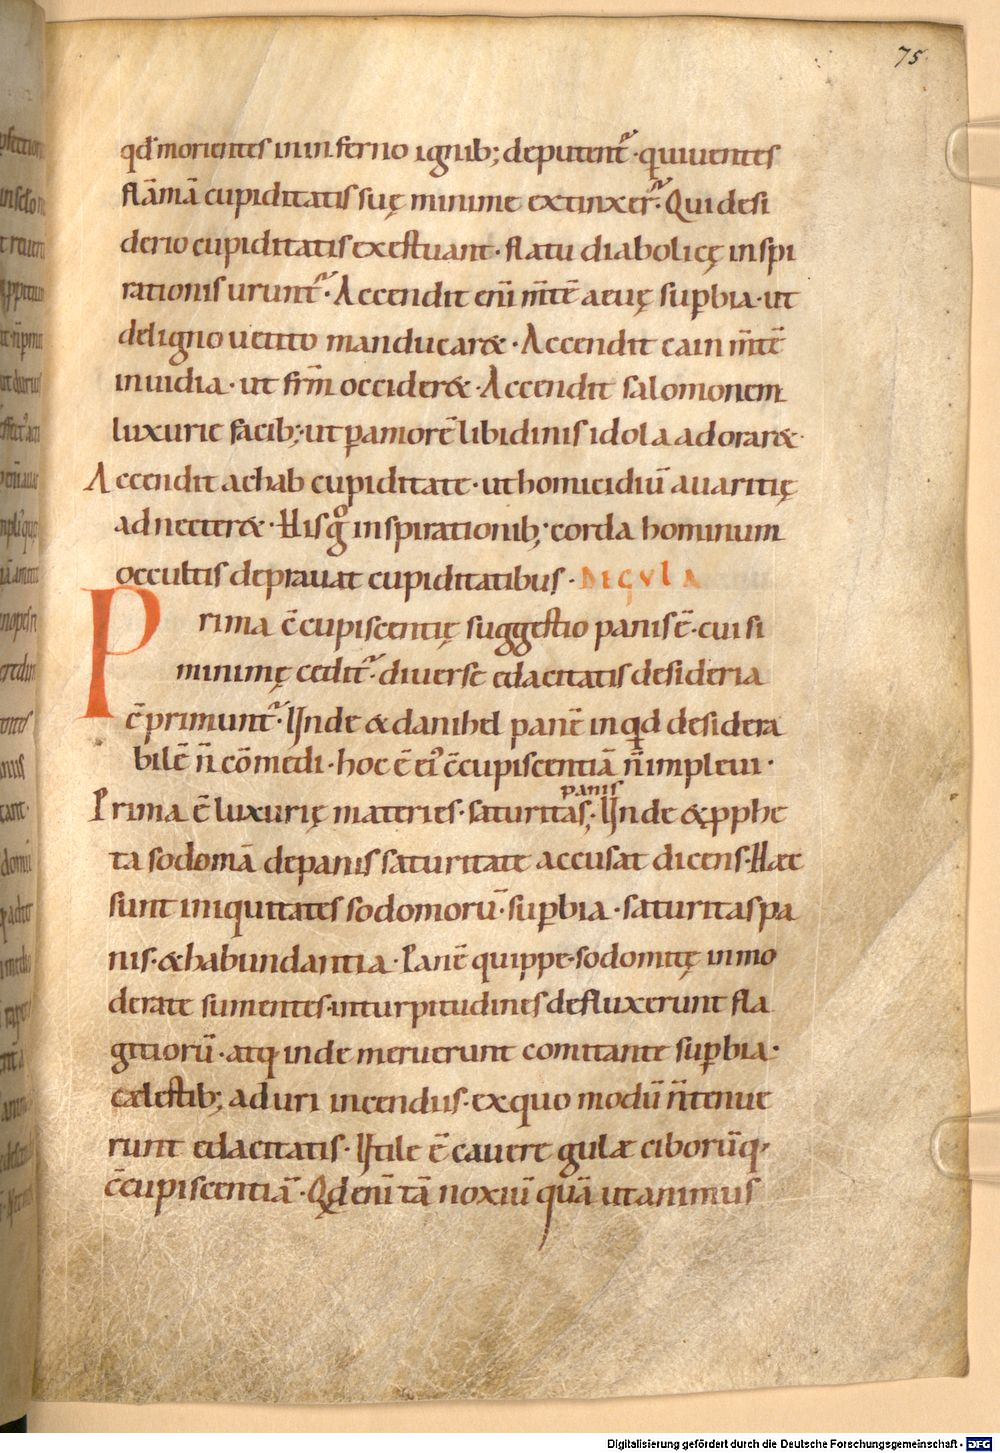 75
qđ morientes in inferno ignib; deputent᷑· qui uentes
flāmā cupiditatis suę minime extinxer᷑· Qui desi
derio cupiditatis exestuant· flatu diabolicę inspi
rationis urunt᷑· Accendit eni̅ m̅te̅ aeuę sup̱bia· ut
de ligno uetito manducar&· Accendit cain m̅te̅
inuidia· ut fr̅m occider&· Accendit salomonem
luxurie facib; ut p̱ amore̅ libidinis idola adorar&·
Accendit achab cupiditate· ut homicidiu̅ auaritię
adnecter&· His gͦ inspirationib; corda hominum
occultis deprauat cupiditatibus· DE GVLA
Prima c̅cupiscentię suggestio panis ē· cui si
minimę cedit᷑· diuerse edacitatis desideria
c̅primunt᷑· Unde & danihel panē inqđ desidera
bilē n̅ co̅medi· hoc ē ei᷒ c̅cupiscentiā n̅ impleui·
Prima ē luxurię materies· saturitas panis;· Unde & p̱phe
ta sodomā de panis saturitate accusat dicens· Hae
sunt iniquitates sodomoru̅· sup̱bia· saturitas pa
nis· & habundantia· Panē quippe· sodomitę inmo
derate sumentes· in turpitudines defluxerunt fla
gitioru̅· atq· inde meruerunt comitante sup̱bia·
cælestib; aduri incendiis· ex quo modu̅ n̅ tenue
runt edacitatis· Utile ē cauere gulæ ciboru̅q·
c̅cupiscentiā· Qđ eni̅ tā noxiu̅ quā ut animus
Digitalisierung gefördert durch die Deutsche Forschungsgemeinschaft - DFG